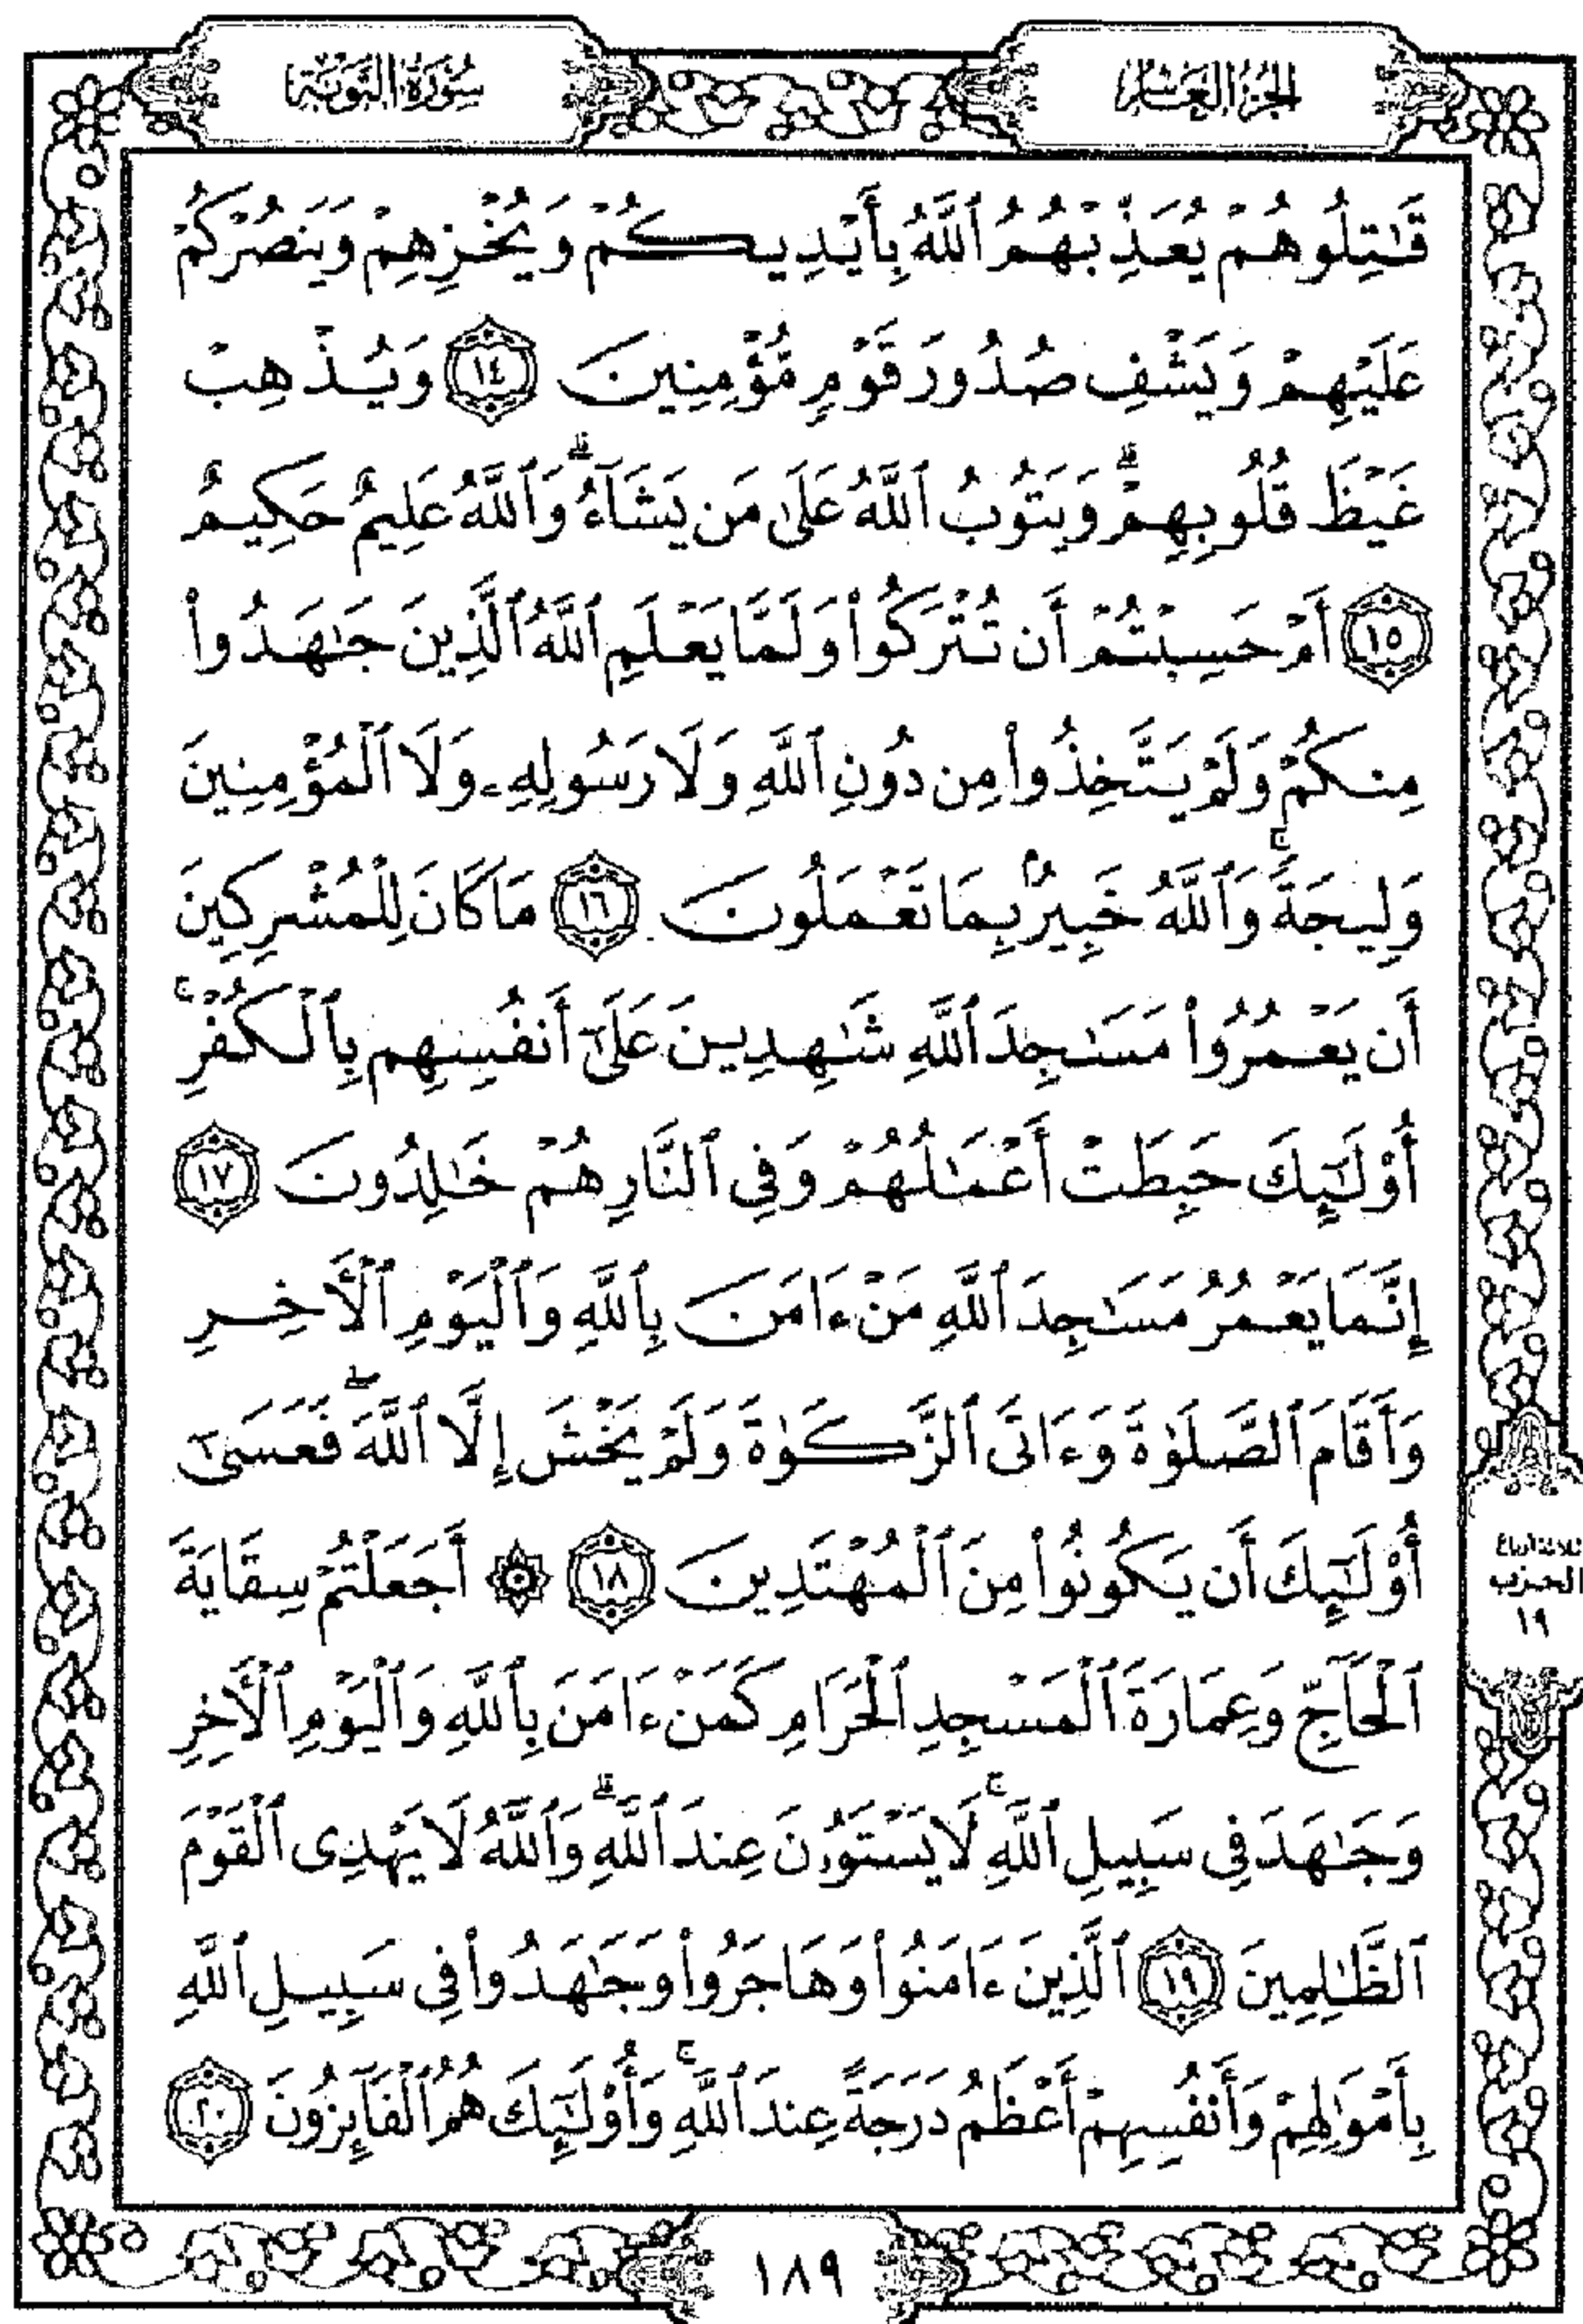 الجزء العاشر
سورة التوبة
قَٰتِلُوهُمْ يُعَذِّبْهُمُ ٱللَّهُ بِأَيْدِيكُمْ وَيُخْزِهِمْ وَيَنصُرْكُمْ
عَلَيْهِمْ وَيَشْفِ صُدُورَ قَوْمٍ مُّؤْمِنِينَ ١٤ وَيُذْهِبْ
غَيْظَ قُلُوبِهِمْ ۗ وَيَتُوبُ ٱللَّهُ عَلَىٰ مَن يَشَآءُ ۗ وَٱللَّهُ عَلِيمٌ حَكِيمٌ
١٥ أَمْ حَسِبْتُمْ أَن تُتْرَكُوا۟ وَلَمَّا يَعْلَمِ ٱللَّهُ ٱلَّذِينَ جَٰهَدُوا۟
مِنكُمْ وَلَمْ يَتَّخِذُوا۟ مِن دُونِ ٱللَّهِ وَلَا رَسُولِهِۦ وَلَا ٱلْمُؤْمِنِينَ
وَلِيجَةً ۚ وَٱللَّهُ خَبِيرٌۢ بِمَا تَعْمَلُونَ ١٦ مَا كَانَ لِلْمُشْرِكِينَ
أَن يَعْمُرُوا۟ مَسَٰجِدَ ٱللَّهِ شَٰهِدِينَ عَلَىٰٓ أَنفُسِهِم بِٱلْكُفْرِ ۚ
أُو۟لَٰٓئِكَ حَبِطَتْ أَعْمَٰلُهُمْ وَفِى ٱلنَّارِ هُمْ خَٰلِدُونَ ١٧
إِنَّمَا يَعْمُرُ مَسَٰجِدَ ٱللَّهِ مَنْ ءَامَنَ بِٱللَّهِ وَٱلْيَوْمِ ٱلْأَخِرِ
وَأَقَامَ ٱلصَّلَوٰةَ وَءَاتَى ٱلزَّكَوٰةَ وَلَمْ يَخْشَ إِلَّا ٱللَّهَ ۖ فَعَسَىٰٓ
أُو۟لَٰٓئِكَ أَن يَكُونُوا۟ مِنَ ٱلْمُهْتَدِينَ ١٨ ۞ أَجَعَلْتُمْ سِقَايَةَ
ٱلْحَآجِّ وَعِمَارَةَ ٱلْمَسْجِدِ ٱلْحَرَامِ كَمَنْ ءَامَنَ بِٱللَّهِ وَٱلْيَوْمِ ٱلْأَخِرِ
وَجَٰهَدَ فِى سَبِيلِ ٱللَّهِ ۚ لَا يَسْتَوُۥنَ عِندَ ٱللَّهِ ۗ وَٱللَّهُ لَا يَهْدِى ٱلْقَوْمَ
ٱلظَّٰلِمِينَ ١٩ ٱلَّذِينَ ءَامَنُوا۟ وَهَاجَرُوا۟ وَجَٰهَدُوا۟ فِى سَبِيلِ ٱللَّهِ
بِأَمْوَٰلِهِمْ وَأَنفُسِهِمْ أَعْظَمُ دَرَجَةً عِندَ ٱللَّهِ ۚ وَأُو۟لَٰٓئِكَ هُمُ ٱلْفَآئِزُونَ ٢٠
ثلاثة أرباع
الحزب
١٩
١٨٩